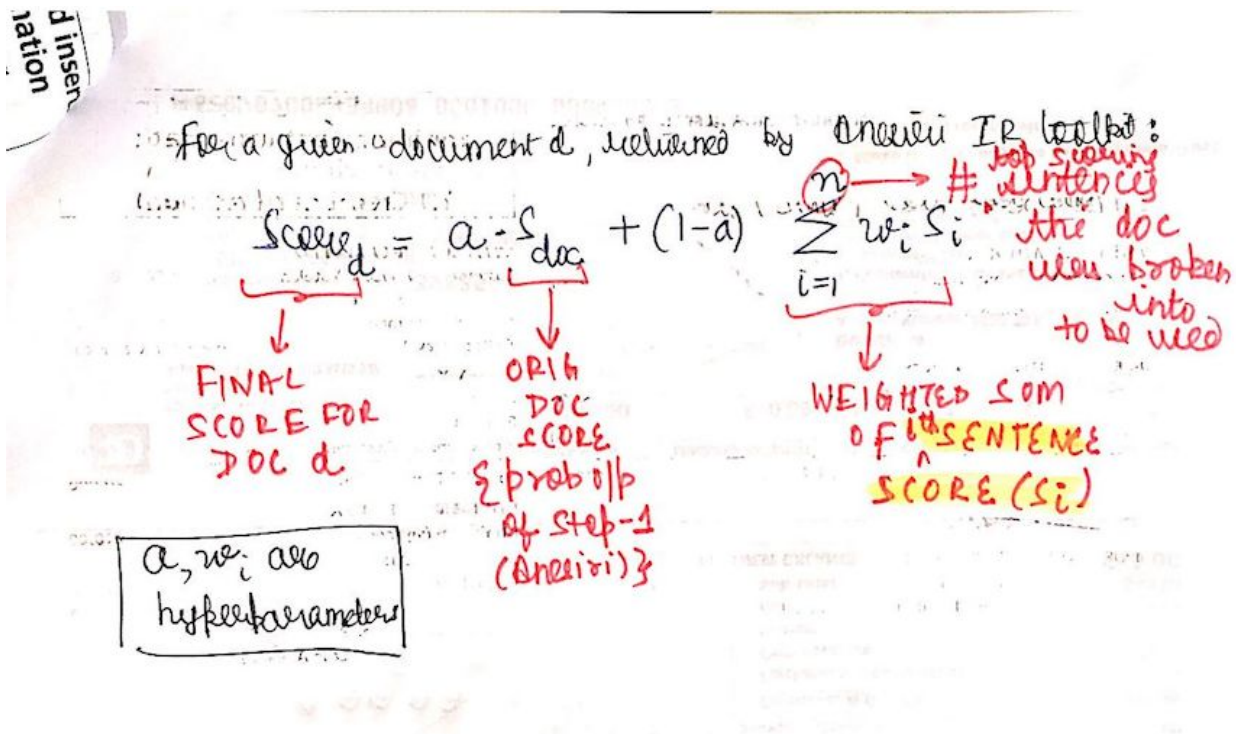 d insert
nation
For a given document d, retrieved by Anserini IR toolkit:
Score_d = a · S_doc + (1-a) n Σ i=1 w_i S_i
n → # top scoring
sentences
the doc
was broken
into
to be used
FINAL
SCORE FOR
DOC d
ORIG
DOC
SCORE
{prob o/p
of Step-1
(Anserini)}
WEIGHTED SUM
OF ith SENTENCE
SCORE (Si)
a, w_i are
hyperparameters